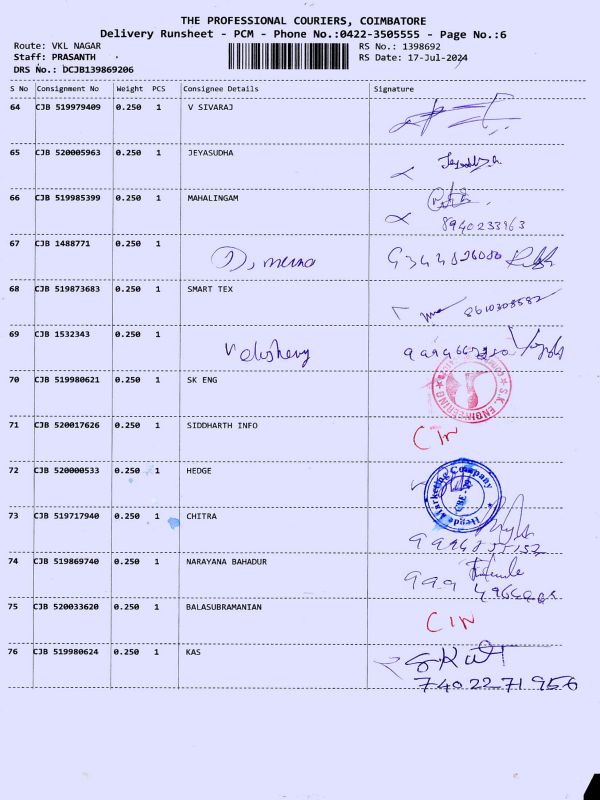 THE PROFESSIONAL COURIERS, COIMBATORE
Delivery Runsheet - PCM - Phone No.:0422-3505555 - Page No.:6
Route: VKL NAGAR RS No.: 1398692
Staff: PRASANTH RS Date: 17-Jul-2024
DRS No.: DCJB139869206
S No Consignment No Weight PCS Consignee Details Signature
64 CJB 519979409 0.250 1 V SIVARAJ
65 CJB 520005963 0.250 1 JEYASUDHA
66 CJB 519985399 0.250 1 MAHALINGAM
8940233963
67 CJB 1488771 0.250 1
68 CJB 519873683 0.250 1 SMART TEX 8610308582
69 CJB 1532343 0.250 1
70 CJB 519980621 0.250 1 SK ENG
S.K. ENGINEERING
71 CJB 520017626 0.250 1 SIDDHARTH INFO
72 CJB 520000533 0.250 1 HEDGE
Hegde Marketing Company
73 CJB 519717940 0.250 1 CHITRA
74 CJB 519869740 0.250 1 NARAYANA BAHADUR
75 CJB 520033620 0.250 1 BALASUBRAMANIAN
76 CJB 519980624 0.250 1 KAS
7402271956